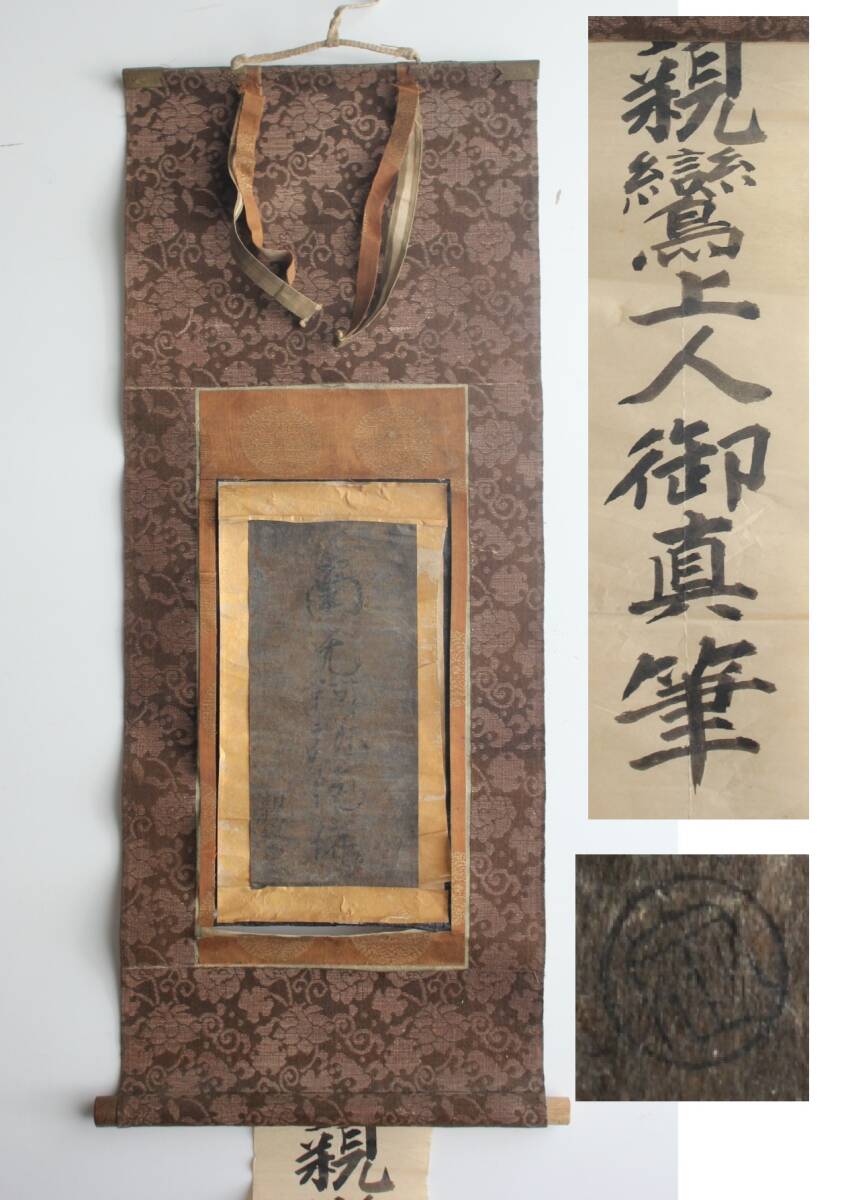 南无阿弥陀佛
親鸞
親鸞上人御真筆
親